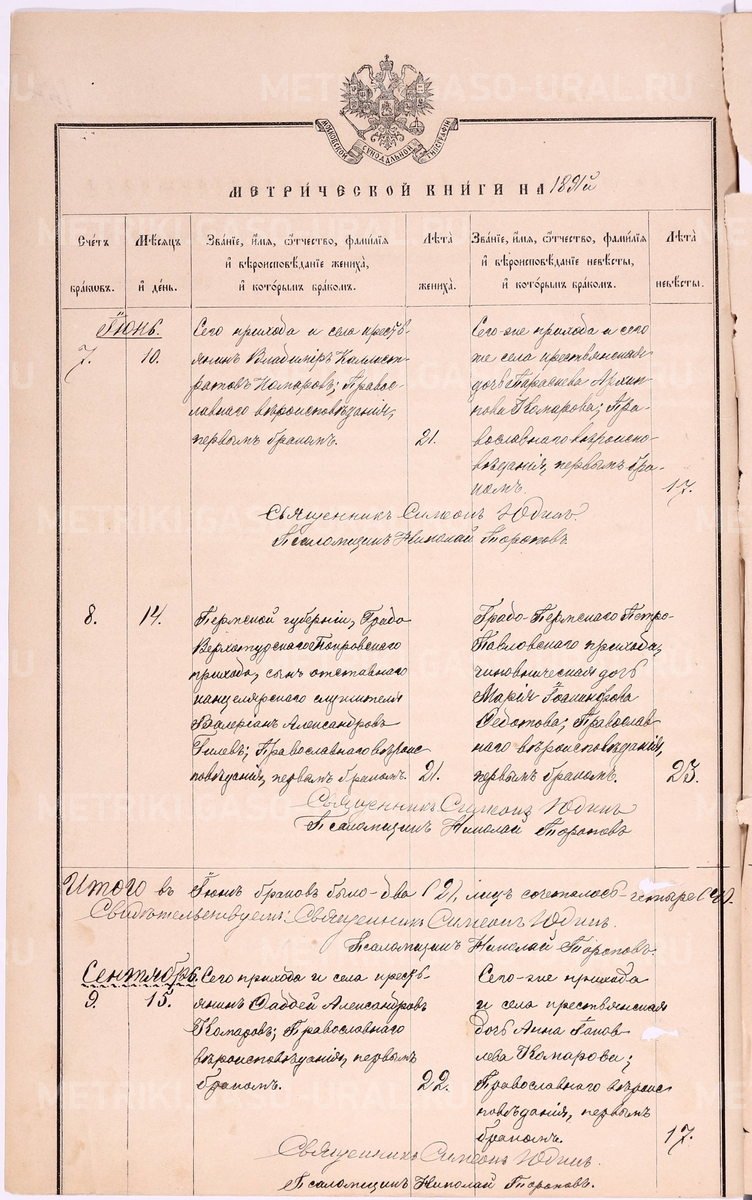 МОСКОВСКОЙ СѴНОДАЛЬНОЙ ТИПОГРАФІИ
МЕТРИЧЕСКОЙ КНИГИ НА 1891й
Счетъ браковъ.
Мѣсяцъ и день.
Званіе, имя, отчество, фамилія и вѣроисповѣданіе жениха, и которымъ бракомъ.
Лѣта жениха.
Званіе, имя, отчество, фамилія и вѣроисповѣданіе невѣсты, и которымъ бракомъ.
Лѣта невѣсты.
Іюнь.
7.
10.
Сего прихода и села кресть-
янинъ Владиміръ Каллист-
ратовъ Комаровъ; Правос-
лавнаго вѣроисповѣданія,
первымъ бракомъ.
21.
Сего-же прихода и сего
же села крестьянская
дочь Параскева Архип-
пова Комарова; Пра-
вославнаго вѣроиспо-
вѣданія, первымъ бра-
комъ.
17.
Священникъ Симеонъ Юдинъ.
Псаломщикъ Николай Тороповъ.
8.
14.
Пермской губерніи, Градо
Верхотурскаго Покровскаго
прихода, сынъ отставнаго
канцелярскаго служителя
Валеріанъ Александровъ
Гилевъ; Православнаго вѣроис
повѣданія, первымъ бракомъ.
21.
Градо-Пермскаго Петро-
Павловскаго прихода,
чиновническая дочь
Марія
Федотова; Православ
наго вѣроисповѣданія,
первымъ бракомъ.
23.
Священникъ Симеонъ Юдинъ
Псаломщикъ Николай Тороповъ
Итого въ Іюнѣ браковъ было-два (2), лицъ сочеталось-четыре (4).
Свидѣтельствуемъ: Священникъ Симеонъ Юдинъ.
Псаломщикъ Николай Тороповъ.
Сентябрь.
9.
15.
Сего прихода и села кресть-
янинъ Фаддей Александровъ
Комаровъ; Православнаго
вѣроисповѣданія, первымъ
бракомъ.
22.
Сего-же прихода
и села крестьянская
дочь Анна Іаков
лева Комарова;
Православнаго вѣроис
повѣданія, первымъ
бракомъ.
17.
Священникъ Симеонъ Юдинъ.
Псаломщикъ Николай Тороповъ.
METRIKI.GASO-URAL.RU